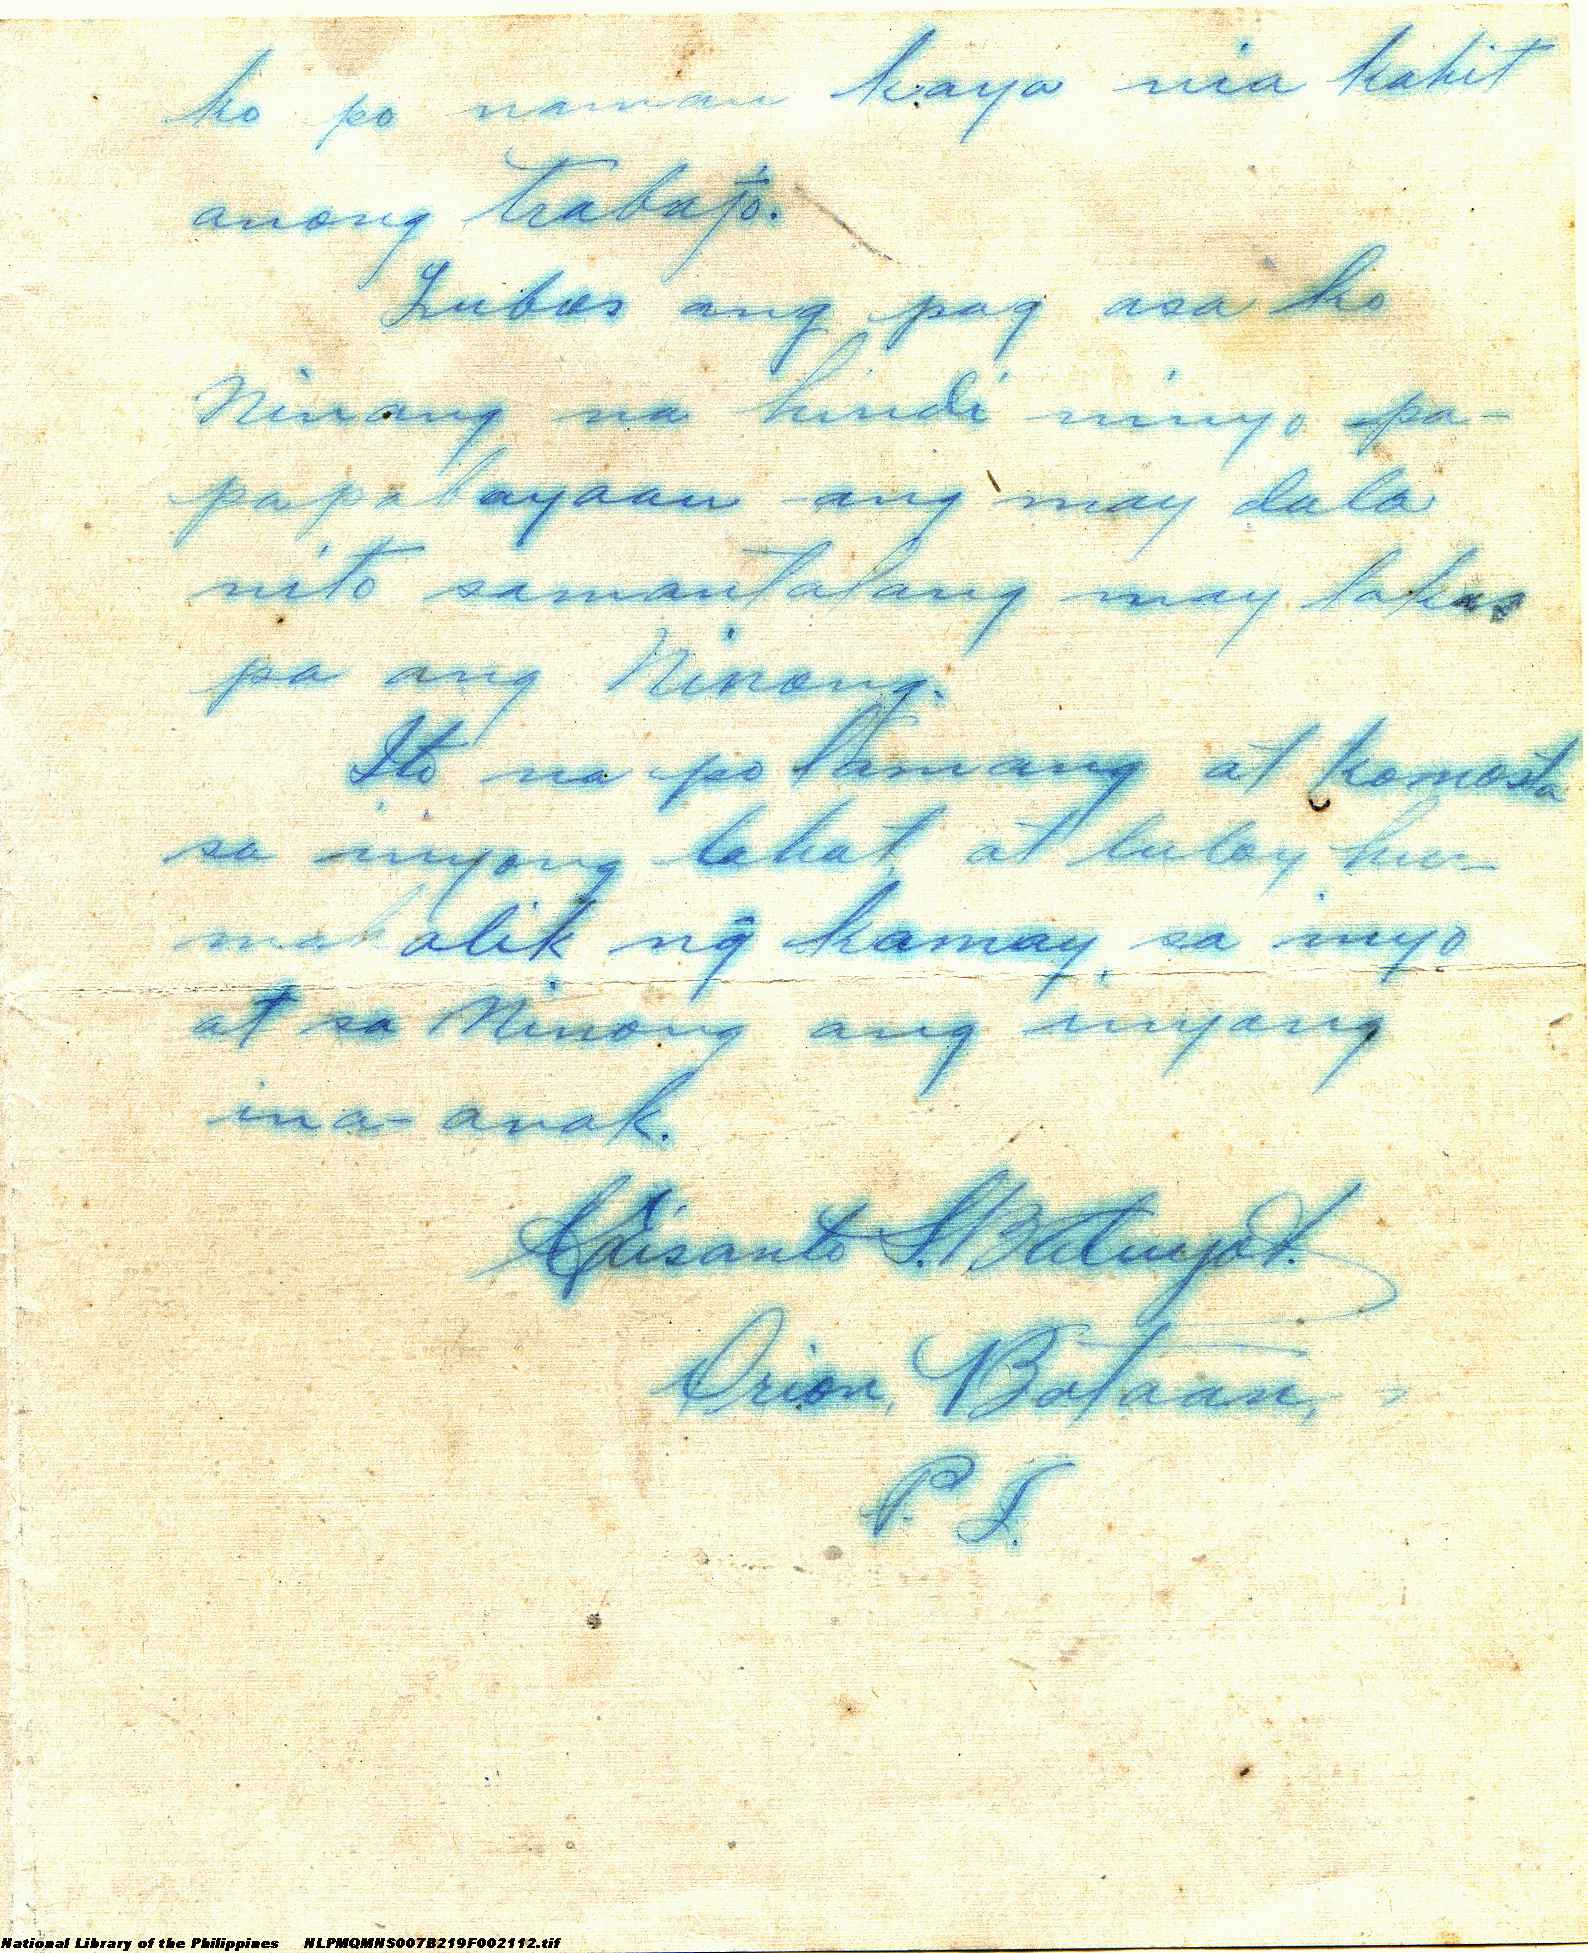 ko po naman kaya nia kahit
anong trabajo.
Lubos ang pag asa ko
Ninang na hindi ninyo pa-
papabayaan ang may dala
nito samantalang may lakas
pa ang Ninong.
Ito na po lamang at komosta
sa inyong lahat at tuloy hu-
mahalik ng̃ kamay sa inyo
at sa Ninong ang inyong
ina-anak.
Crisanto S. Batungot.
Orion, Bataan,
P. I.
National Library of the Philippines NLPMQMNS007B219F002112.tif